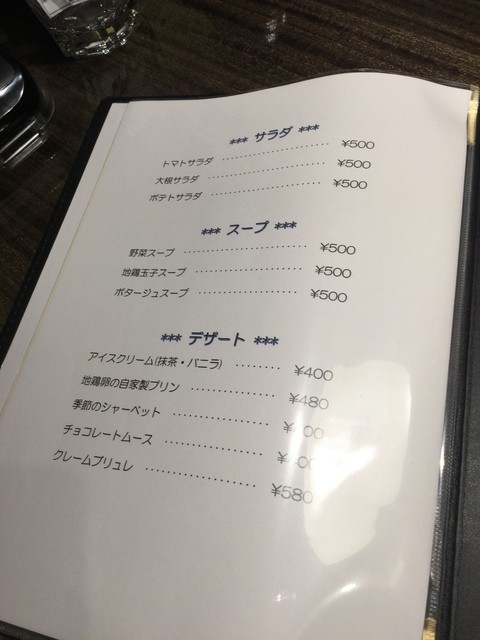 *** サラダ ***
トマトサラダ ‥‥‥‥‥‥‥‥ ¥500
大根サラダ ‥‥‥‥‥‥‥‥ ¥500
ポテトサラダ ‥‥‥‥‥‥‥‥ ¥500
*** スープ ***
野菜スープ ‥‥‥‥‥‥‥‥ ¥500
地鶏玉子スープ ‥‥‥‥‥‥‥‥ ¥500
ポタージュスープ ‥‥‥‥‥‥‥ ¥500
*** デザート ***
アイスクリーム(抹茶・バニラ) ‥‥‥‥ ¥400
地鶏卵の自家製プリン ‥‥‥‥‥‥ ¥480
季節のシャーベット ‥‥‥‥‥‥‥
チョコレートムース ‥‥‥‥‥‥‥
クレームブリュレ ‥‥‥‥‥‥‥‥ ¥580